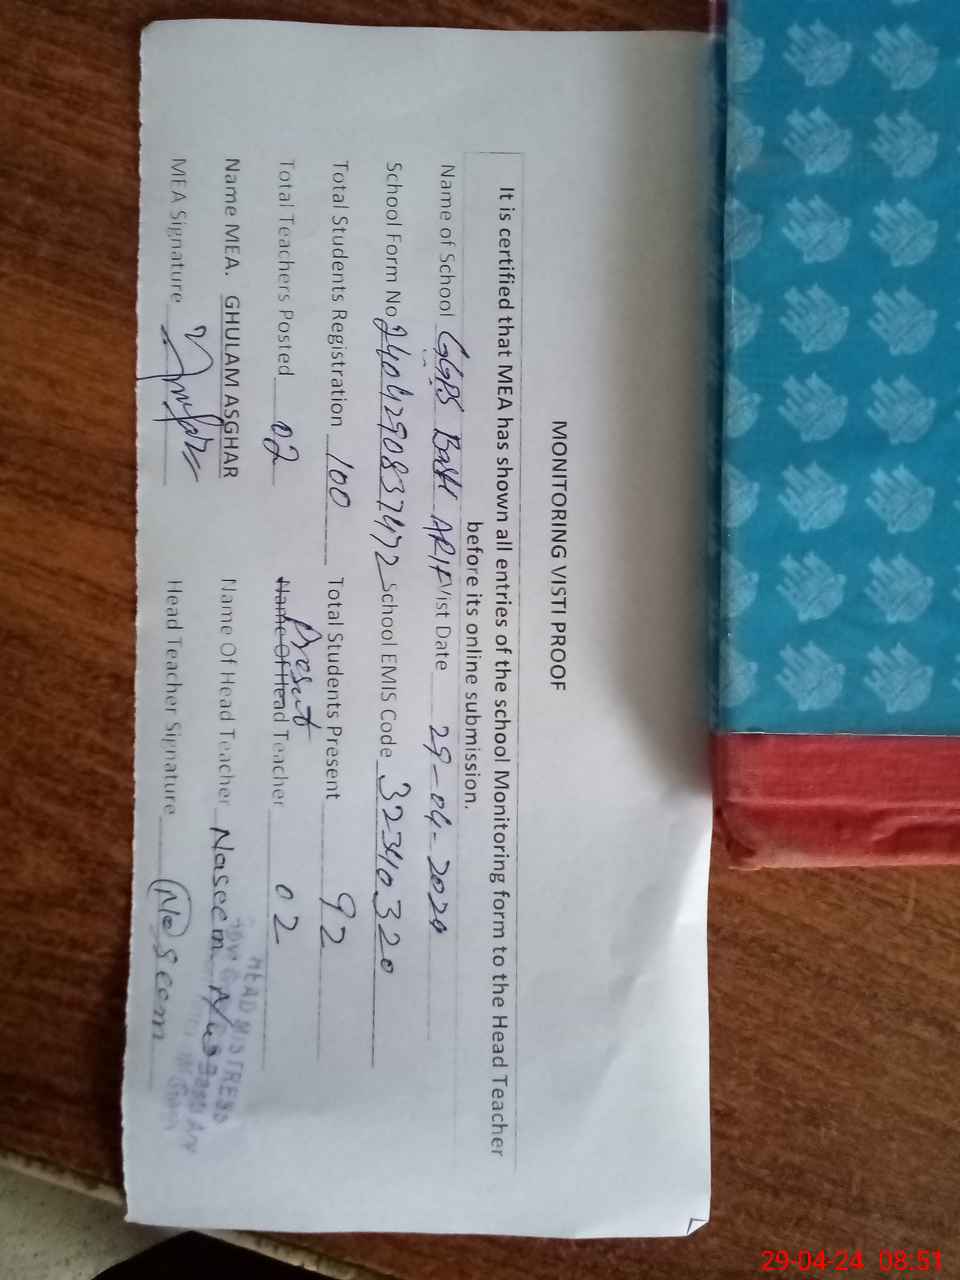 MONITORING VISTI PROOF
It is certified that MEA has shown all entries of the school Monitoring form to the Head Teacher
before its online submission.
Name of School GGPS Basti ARIF Vist Date 29-04-2024
School Form No 2404290837472 School EMIS Code 32340320
Total Students Registration 100 Total Students Present 92
Present
Total Teachers Posted 02 Name Of Head Teacher 02
Name MEA. GHULAM ASGHAR Name Of Head Teacher Naseem
HEAD MISTRESS
MEA Signature Head Teacher Signature Naseem
29-04-24 08:51